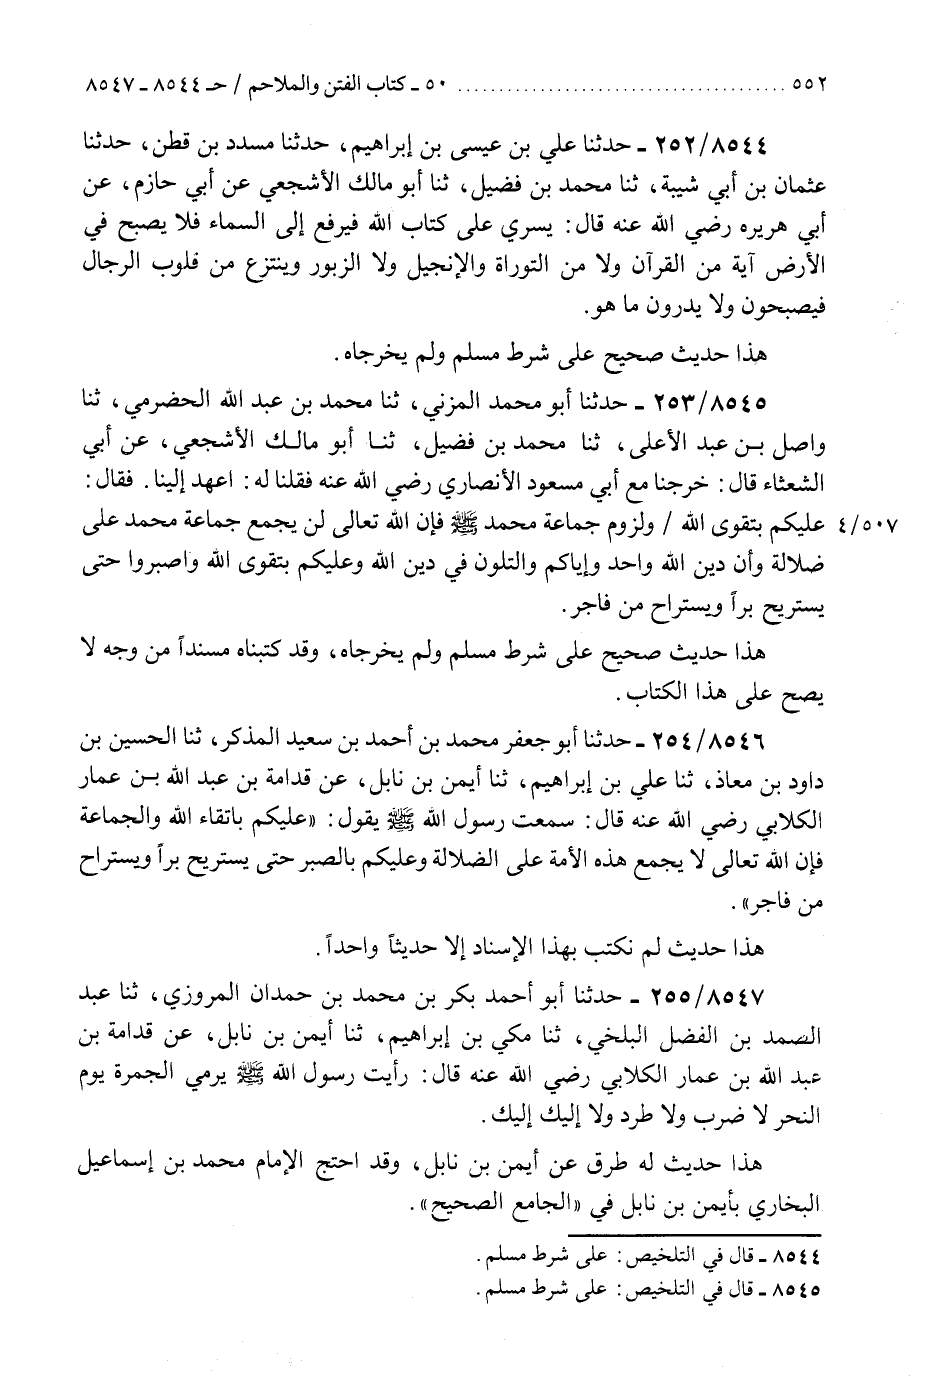 ٥٥٢ ..................................... ٥٠ ـ كتاب الفتن والملاحم / حـ ٨٥٤٤ ـ ٨٥٤٧
٢٥٢/٨٥٤٤ ـ حدثنا علي بن عيسى بن إبراهيم، حدثنا مسدد بن قطن، حدثنا
عثمان بن أبي شيبة، ثنا محمد بن فضيل، ثنا أبو مالك الأشجعي عن أبي حازم، عن
أبي هريره رضي الله عنه قال: يسري على كتاب الله فيرفع إلى السماء فلا يصبح في
الأرض آية من القرآن ولا من التوراة والإنجيل ولا الزبور وينتزع من قلوب الرجال
فيصبحون ولا يدرون ما هو.
هذا حديث صحيح على شرط مسلم ولم يخرجاه.
٢٥٣/٨٥٤٥ ـ حدثنا أبو محمد المزني، ثنا محمد بن عبد الله الحضرمي، ثنا
واصل بـن عبد الأعلى، ثنا محمد بن فضيل، ثنـا أبو مالـك الأشجعي، عن أبي
الشعثاء قال: خرجنا مع أبي مسعود الأنصاري رضي الله عنه فقلنا له: اعهد إلينا. فقال:
٤/٥٠٧ عليكم بتقوى الله / ولزوم جماعة محمد ﷺ فإن الله تعالى لن يجمع جماعة محمد على
ضلالة وأن دين الله واحد وإياكم والتلون في دين الله وعليكم بتقوى الله واصبروا حتى
يستريح براً ويستراح من فاجر.
هذا حديث صحيح على شرط مسلم ولم يخرجاه، وقد كتبناه مسنداً من وجه لا
يصح على هذا الكتاب.
٢٥٤/٨٥٤٦ ـ حدثنا أبو جعفر محمد بن أحمد بن سعيد المذكر، ثنا الحسين بن
داود بن معاذ، ثنا علي بن إبراهيم، ثنا أيمن بن نابل، عن قدامة بن عبد الله بـن عمار
الكلابي رضي الله عنه قال: سمعت رسول الله ﷺ يقول: «عليكم باتقاء الله والجماعة
فإن الله تعالى لا يجمع هذه الأمة على الضلالة وعليكم بالصبر حتى يستريح براً ويستراح
من فاجر».
هذا حديث لم نكتب بهذا الإسناد إلا حديثاً واحداً.
٢٥٥/٨٥٤٧ ـ حدثنا أبو أحمد بكر بن محمد بن حمدان المروزي، ثنا عبد
الصمد بن الفضل البلخي، ثنا مكي بن إبراهيم، ثنا أيمن بن نابل، عن قدامة بن
عبد الله بن عمار الكلابي رضي الله عنه قال: رأيت رسول الله ﷺ يرمي الجمرة يوم
النحر لا ضرب ولا طرد ولا إليك إليك.
هذا حديث له طرق عن أيمن بن نابل، وقد احتج الإمام محمد بن إسماعيل
البخاري بأيمن بن نابل في «الجامع الصحيح».
٨٥٤٤ ـ قال في التلخيص: على شرط مسلم.
٨٥٤٥ ـ قال في التلخيص: على شرط مسلم.